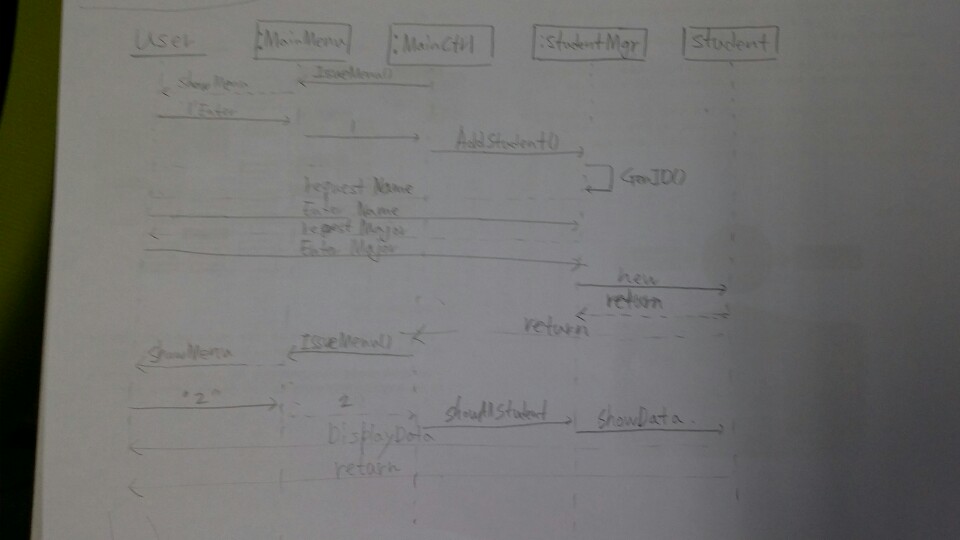 User :MainMenu :MainCtrl :StudentMgr Student
showMenu IssueMenu()
1 Enter
1 AddStudent()
GenID()
request Name
Enter Name
request Major
Enter Major
new
return
return
showMenu IssueMenu()
"2" 2 showAllStudent showData
DisplayData
return